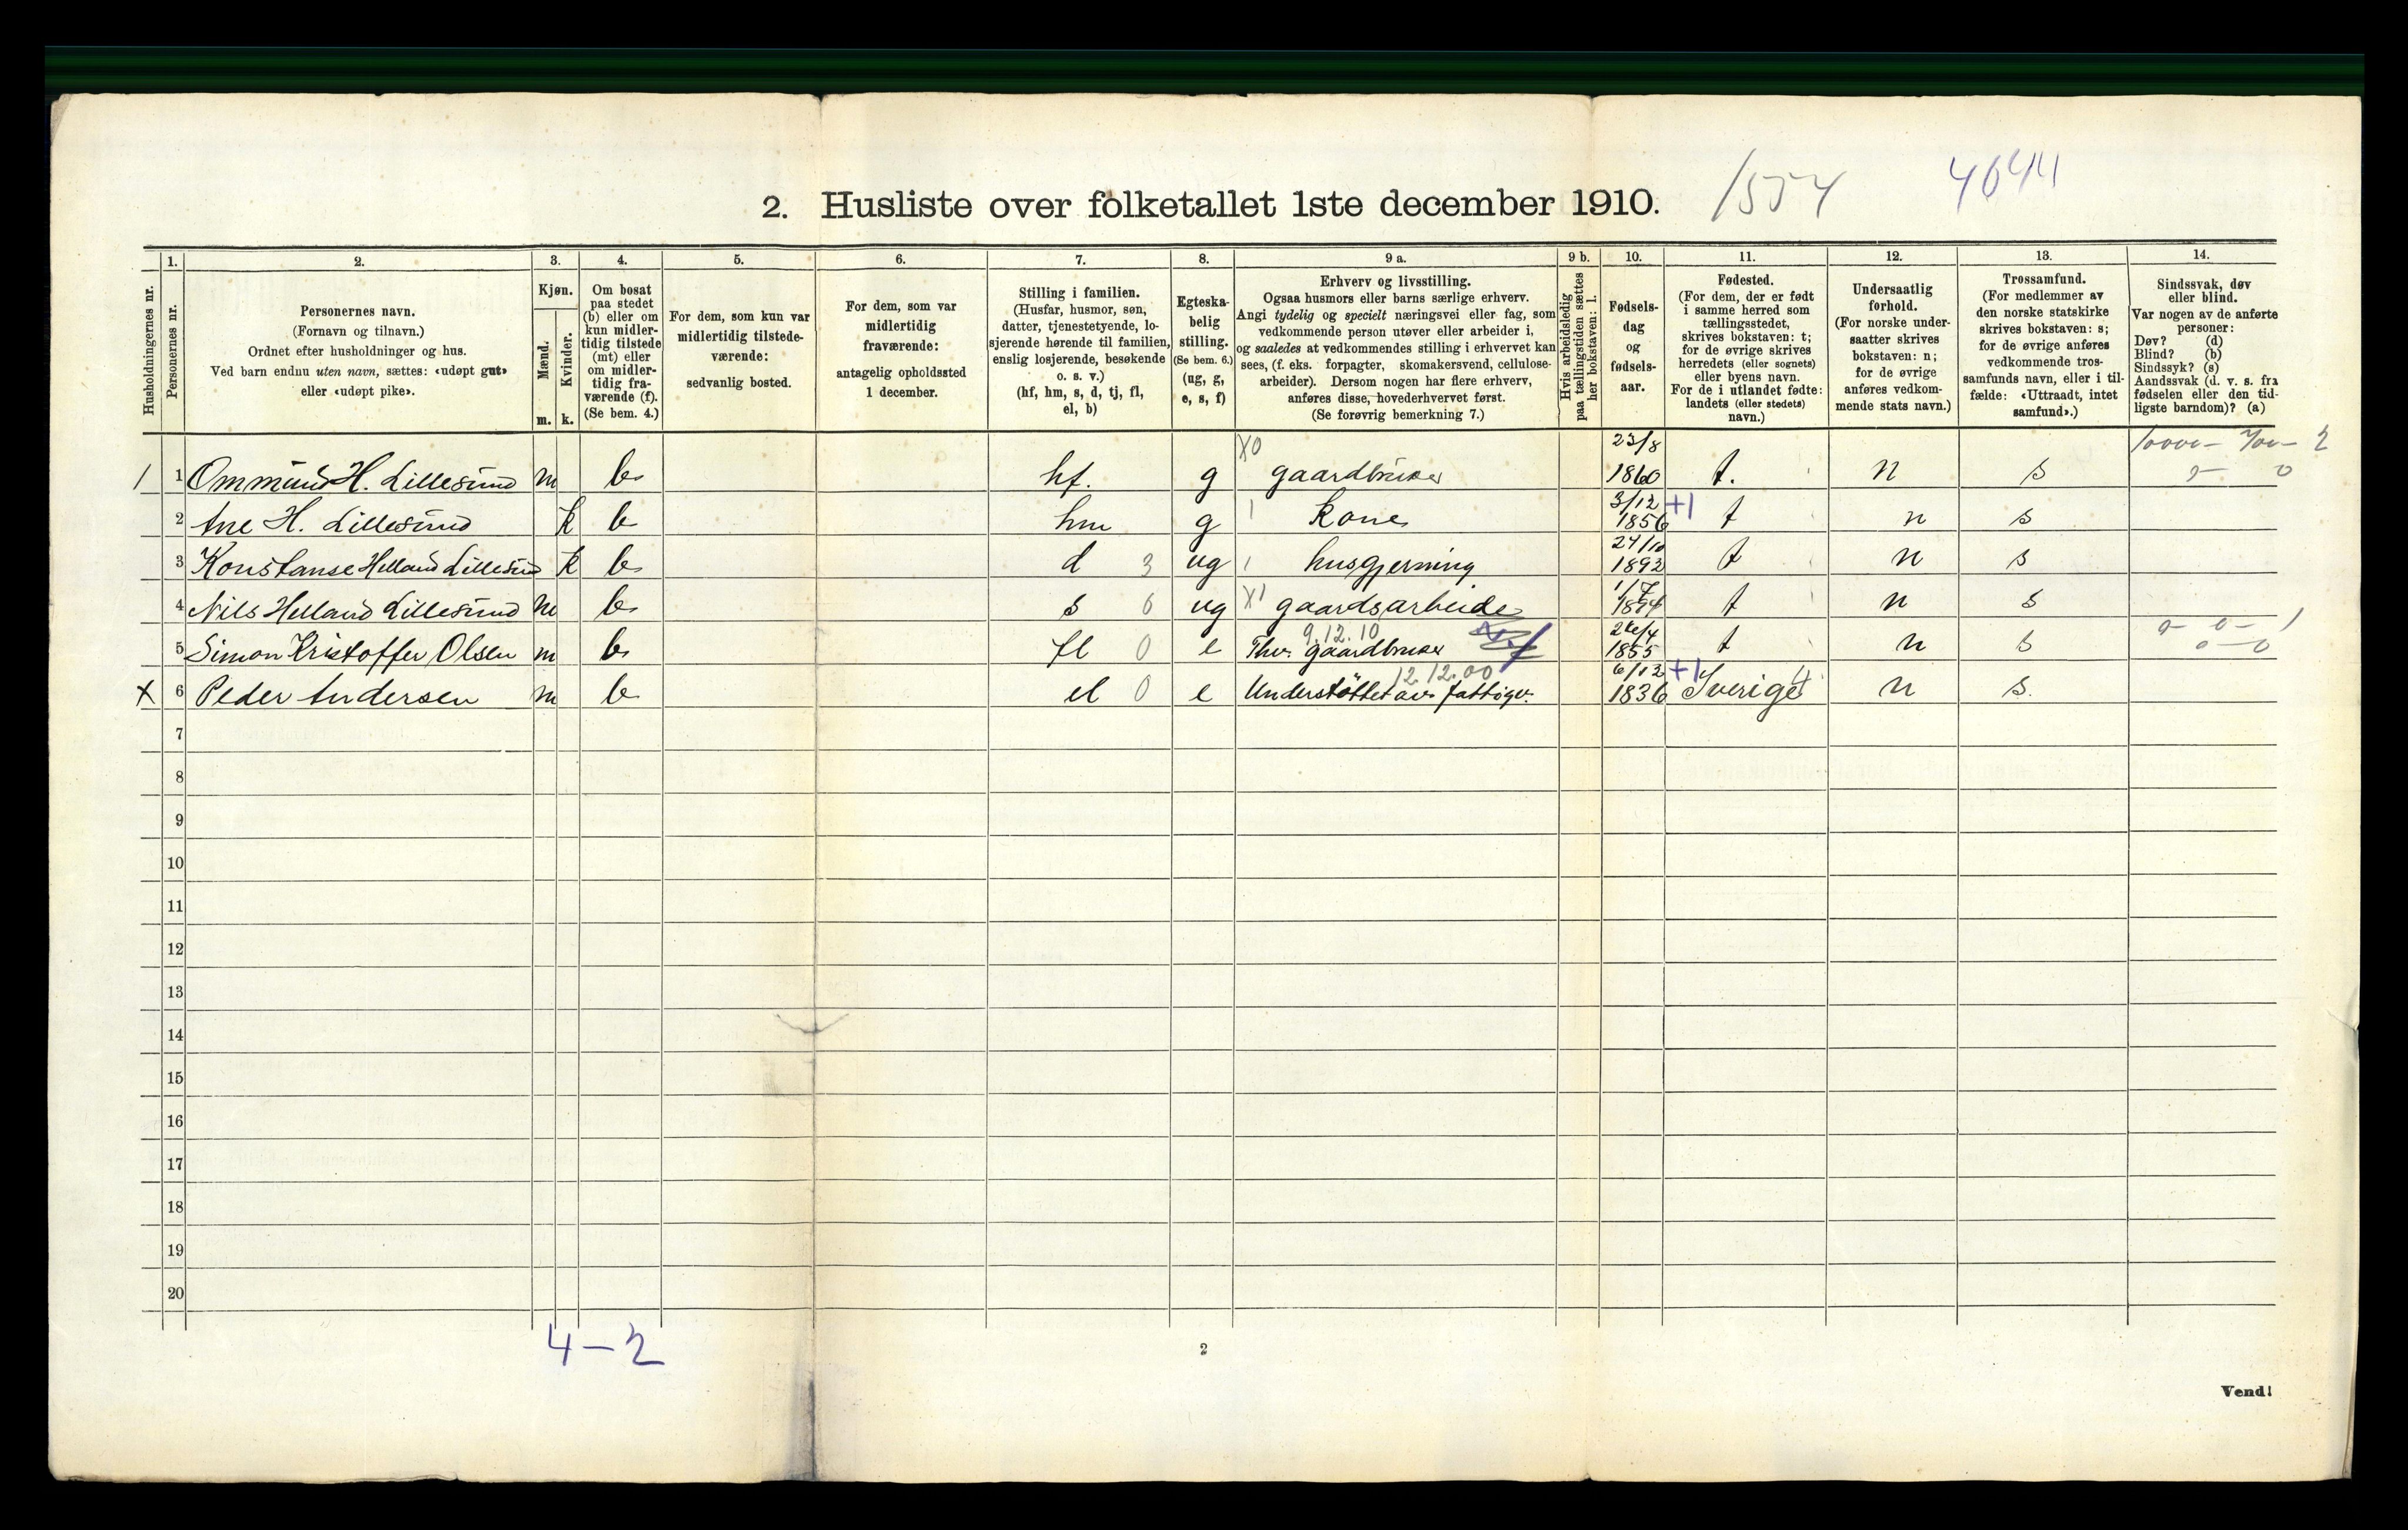 2. Husliste over folketallet 1ste december 1910. 1554 4644
1. 2. 3. 4. 5. 6. 7. 8. 9 a. 9 b. 10. 11. 12. 13. 14.
Husholdningernes nr.
Personernes nr.
Personernes navn.
(Fornavn og tilnavn.)
Ordnet efter husholdninger og hus.
Ved barn endnu uten navn, sættes: «udøpt gut»
eller «udøpt pike».
Kjøn.
Mænd.
Kvinder.
m. k.
Om bosat
paa stedet
(b) eller om
kun midler-
tidig tilstede
(mt) eller
om midler-
tidig fra-
værende (f).
(Se bem. 4.)
For dem, som kun var
midlertidig tilstede-
værende:
sedvanlig bosted.
For dem, som var
midlertidig
fraværende:
antagelig opholdssted
1 december.
Stilling i familien.
(Husfar, husmor, søn,
datter, tjenestetyende, lo-
sjerende hørende til familien,
enslig losjerende, besøkende
o. s. v.)
(hf, hm, s, d, tj, fl,
el, b)
Egteska-
belig
stilling.
(Se bem. 6.)
(ug, g,
e, s, f)
Erhverv og livsstilling.
Ogsaa husmors eller barns særlige erhverv.
Angi tydelig og specielt næringsvei eller fag, som
vedkommende person utøver eller arbeider i,
og saaledes at vedkommendes stilling i erhvervet kan
sees, (f. eks. forpagter, skomakersvend, cellulose-
arbeider). Dersom nogen har flere erhverv,
anføres disse, hovederhvervet først.
(Se forøvrig bemerkning 7.)
Hvis arbeidsledig
paa tællingstiden sættes
her bokstaven: l.
Fødsels-
dag
og
fødsels-
aar.
Fødested.
(For dem, der er født
i samme herred som
tællingsstedet,
skrives bokstaven: t;
for de øvrige skrives
herredets (eller sognets)
eller byens navn.
For de i utlandet fødte:
landets (eller stedets)
navn.)
Undersaatlig
forhold.
(For norske under-
saatter skrives
bokstaven: n;
for de øvrige
anføres vedkom-
mende stats navn.)
Trossamfund.
(For medlemmer av
den norske statskirke
skrives bokstaven: s;
for de øvrige anføres
vedkommende tros-
samfunds navn, eller i til-
fælde: «Uttraadt, intet
samfund».)
Sindssvak, døv
eller blind.
Var nogen av de anførte
personer:
Døv? (d)
Blind? (b)
Sindssyk? (s)
Aandssvak (d. v. s. fra
fødselen eller den tid-
ligste barndom)? (a)
X0 23/8
1 1 Ommund H. Lillesund m b hf. g gaardbruker 1860 t. n s
3/12 +1
2 Ane H. Lillesund k b hm g 1 Kone 1856 t n s
24/10
3 Konstanse Helland Lillesund k b d 3 ug 1 husgjerning 1892 t n s
1/7
4 Nils Helland Lillesund m b s 0 ug X1 gaardsarbeide 1894 t n s
9.12.10
5 Simon Kristoffer Olsen m b fl 0 e Fhv. gaardbruker 1855 t n s
12.12.00 6/12 +1
X 6 Peder Andersen m b el 0 e Understøttet av fattigv. 1836 Sverige n s.
7
8
9
10
11
12
13
14
15
16
17
18
19
20
4 – 2
2
Vend!